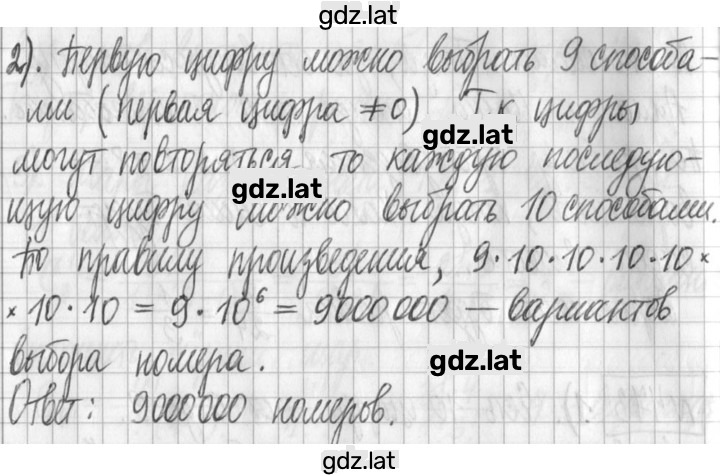 gdz.lat
2). Первую цифру можно выбрать 9 способа-
ми (первая цифра ≠0) Т.к цифры
gdz.lat
могут повторяться то каждую последую-
gdz.lat
щую цифру можно выбрать 10 способами.
По правилу произведения, 9·10·10·10·10×
×10·10 = 9·10⁶ = 9000 000 – вариантов
выбора номера.
gdz.lat
Ответ: 9000 000 номеров.
gdz.lat